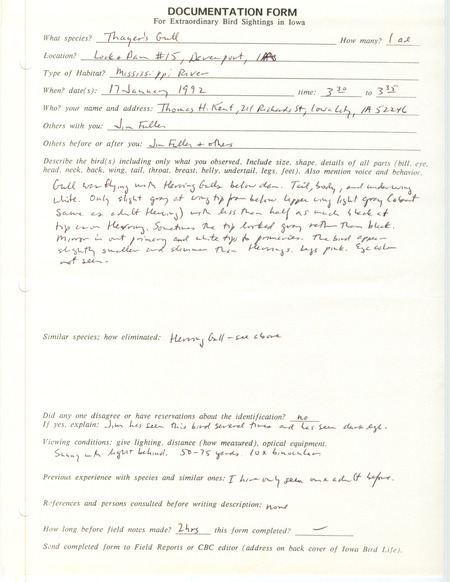 DOCUMENTATION FORM
For Extraordinary Bird Sightings in Iowa
What species? Thayer's Gull How many? 1 ad
Location? Lock & Dam #15, Davenport, IA
Type of Habitat? Mississippi River
When? date(s): 17 January 1992 time: 3 30 to 3 35
Who? your name and address: Thomas H. Kent, 211 Richards St, Iowa City, IA 52246
Others with you: Jim Fuller
Others before or after you: Jim Fuller + others
Describe the bird(s) including only what you observed. Include size, shape, details of all parts (bill, eye,
head, neck, back, wing, tail, throat, breast, belly, undertail, legs, feet). Also mention voice and behavior.
Gull was flying with Herring Gulls below dam. Tail, body, and underwing
white. Only slight gray at wing tip from below. Upper wing light gray (about
same as adult Herring) with less than half as much black at
tip as on Herring. Sometimes the tip looked gray rather than black.
Mirror in out primary and white tips to primaries. The bird appear
slightly smaller and slimmer than Herrings. Legs pink. Eye color
not seen.
Similar species; how eliminated: Herring Gull - see above
Did any one disagree or have reservations about the identification? no
If yes, explain: Jim has seen this bird several times and has seen dark eye.
Viewing conditions: give lighting, distance (how measured), optical equipment.
Sunny with light behind. 50-75 yards. 10x binocular
Previous experience with species and similar ones: I have only seen one adult before.
References and persons consulted before writing description: none
How long before field notes made? 2 hrs this form completed? –
Send completed form to Field Reports or CBC editor (address on back cover of Iowa Bird Life).